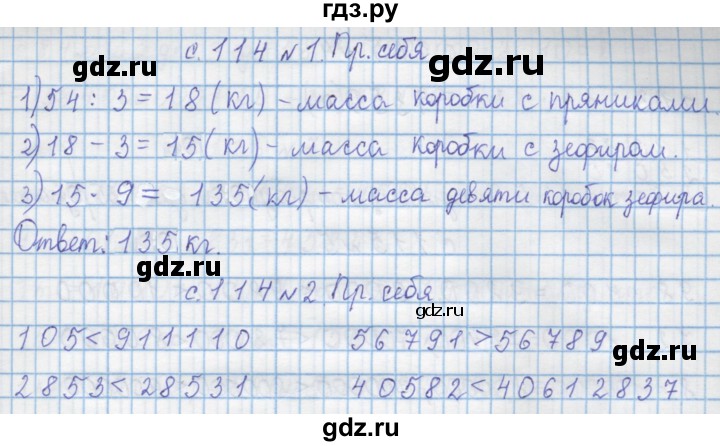 гдз.ру
с. 114 №1. Пр. себя
gdz.ru gdz.ru
1) 54 : 3 = 18 (кг) - масса коробки с пряниками.
2) 18 - 3 = 15 (кг) - масса коробки с зефиром.
gdz.ru gdz.ru
3) 15 · 9 = 135 (кг) - масса девяти коробок зефира.
Ответ: 135 кг.
gdz.ru
с. 114 №2. Пр. себя
gdz.ru
105 < 911110 56791 > 56789
gdz.ru
2853 < 28531 40582 < 40612837
gdz.ru